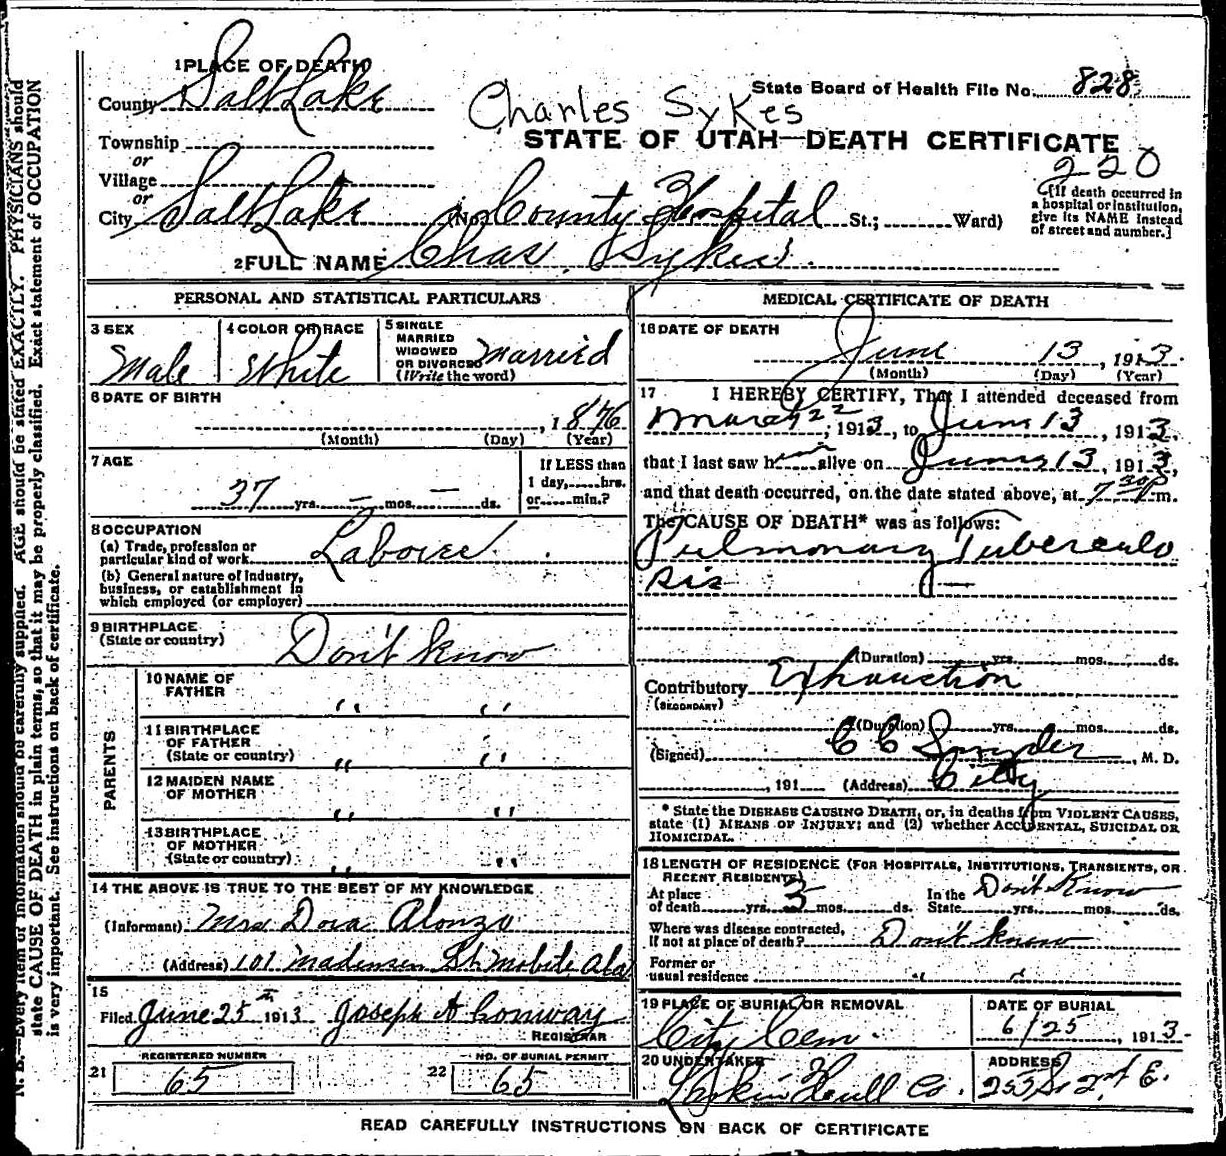 1 PLACE OF DEATH
County Salt Lake
State Board of Health File No. 828
Charles Sykes
Township
STATE OF UTAH—DEATH CERTIFICATE
or
Village
220
or
City Salt Lake (No. County Hospital St.; Ward)
[If death occurred in
a hospital or institution,
give its NAME instead
of street and number.]
2 FULL NAME Chas. Sykes
PERSONAL AND STATISTICAL PARTICULARS
3 SEX
Male
4 COLOR OR RACE
White
5 SINGLE
MARRIED
WIDOWED
OR DIVORCED
(Write the word)
Married
6 DATE OF BIRTH
, 1876
(Month) (Day) (Year)
7 AGE
37 yrs. — mos. — ds.
If LESS than
1 day, hrs.
or min.?
8 OCCUPATION
(a) Trade, profession or
particular kind of work Laborer
(b) General nature of industry,
business, or establishment in
which employed (or employer)
9 BIRTHPLACE
(State or country) Don't know
PARENTS
10 NAME OF
FATHER " "
11 BIRTHPLACE
OF FATHER
(State or country) " "
12 MAIDEN NAME
OF MOTHER " "
13 BIRTHPLACE
OF MOTHER
(State or country) " "
14 THE ABOVE IS TRUE TO THE BEST OF MY KNOWLEDGE
(Informant) Mrs Dora Alonzo
(Address) 101 St. Mobile Ala
15
Filed June 25th 1913 Joseph A Conway
REGISTRAR
REGISTERED NUMBER
21 65
NO. OF BURIAL PERMIT
22 65
MEDICAL CERTIFICATE OF DEATH
16 DATE OF DEATH
June 13, 1913.
(Month) (Day) (Year)
17 I HEREBY CERTIFY, That I attended deceased from
March 22, 1913, to June 13, 1913,
that I last saw him alive on June 13, 1913,
and that death occurred, on the date stated above, at 7 30 P m.
The CAUSE OF DEATH* was as follows:
Pulmonary Tuberculo
sis —
(Duration) yrs. mos. ds.
Contributory Exhauction
(SECONDARY)
(Duration) yrs. mos. ds.
(Signed) C C Snyder, M. D.
, 191 (Address) City
* State the DISEASE CAUSING DEATH, or, in deaths from VIOLENT CAUSES,
state (1) MEANS OF INJURY; and (2) whether ACCIDENTAL, SUICIDAL OR
HOMICIDAL.
18 LENGTH OF RESIDENCE (FOR HOSPITALS, INSTITUTIONS, TRANSIENTS, OR
RECENT RESIDENTS)
At place
of death yrs. 3 mos. ds.
In the
State Don't Know yrs. mos. ds.
Where was disease contracted,
if not at place of death? Don't know
Former or
usual residence " "
19 PLACE OF BURIAL OR REMOVAL
City Cem.
DATE OF BURIAL
6/25, 1913
20 UNDERTAKER
Larkin Hull Co.
ADDRESS
E.
N. B.—Every item of information should be carefully supplied. AGE should be stated EXACTLY. PHYSICIANS should
state CAUSE OF DEATH in plain terms, so that it may be properly classified. Exact statement of OCCUPATION
is very important. See instructions on back of certificate.
READ CAREFULLY INSTRUCTIONS ON BACK OF CERTIFICATE